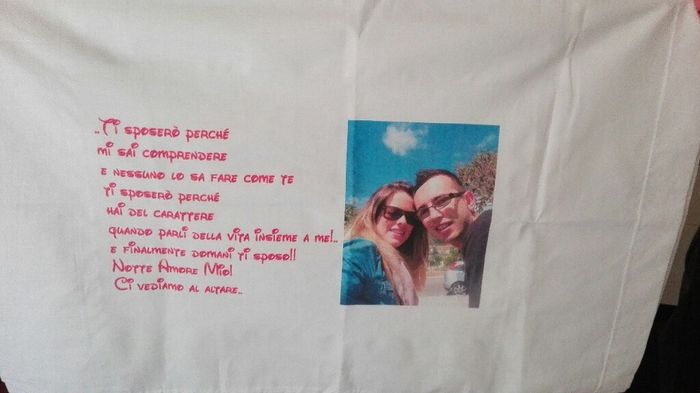 ..Ti sposerò perché
mi sai comprendere
e nessuno lo sa fare come te
ti sposerò perché
hai del carattere
quando parli della vita insieme a me!..
e finalmente domani ti sposo!!
Notte Amore Mio!
Ci vediamo al altare..